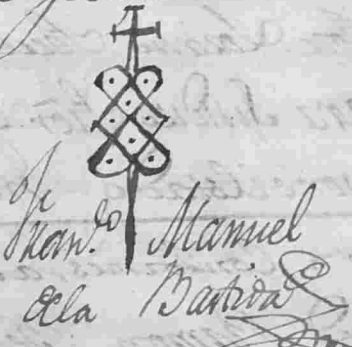 Fran.co Manuel
dela Bastida